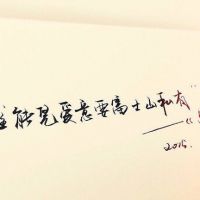 能凭爱意要富士山私有”
——《
2015.